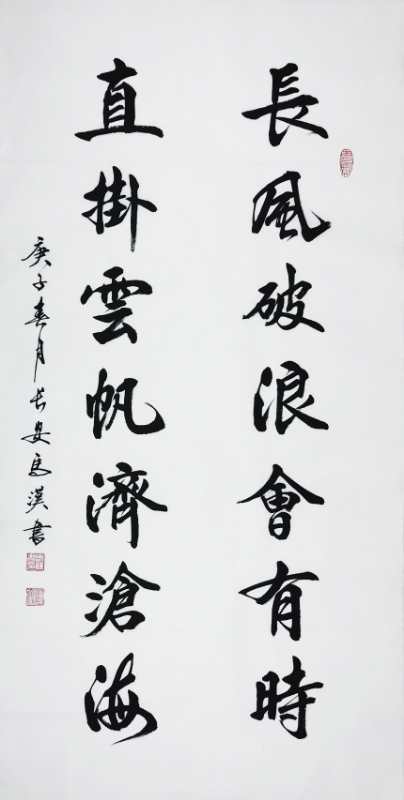 長風破浪會有時
直掛雲帆濟滄海
庚子春月长安马漢書